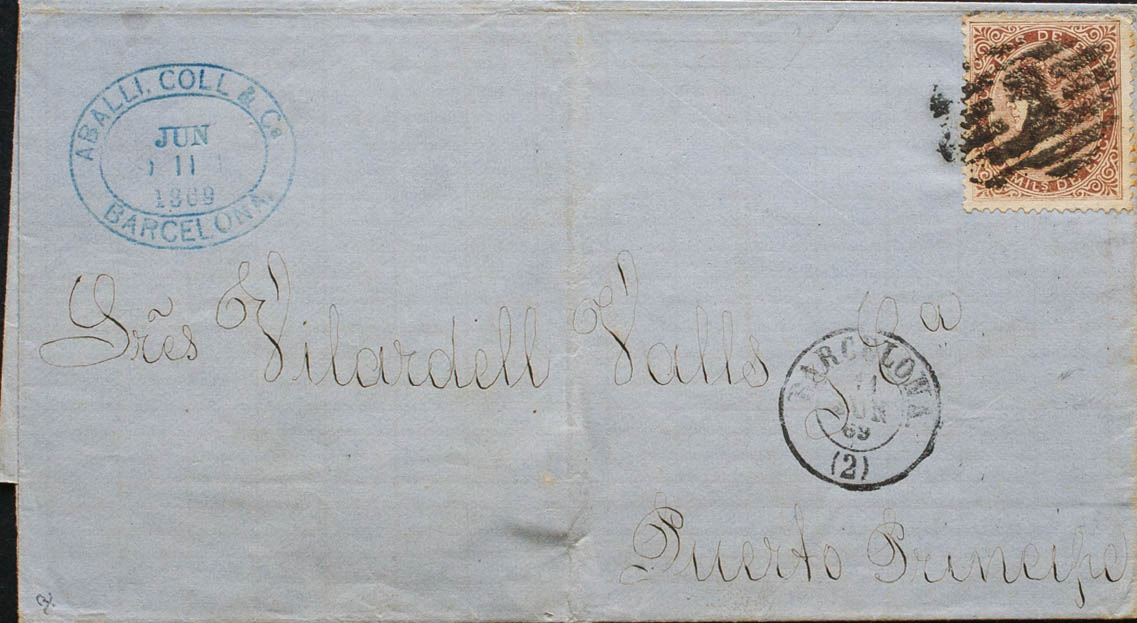 ABALLI, COLL & Ca
JUN
11
1869
BARCELONA
MILS DE
Sres Vilardell Valls Ca
BARCELONA
11
JUN
69
(2)
Puerto Principe